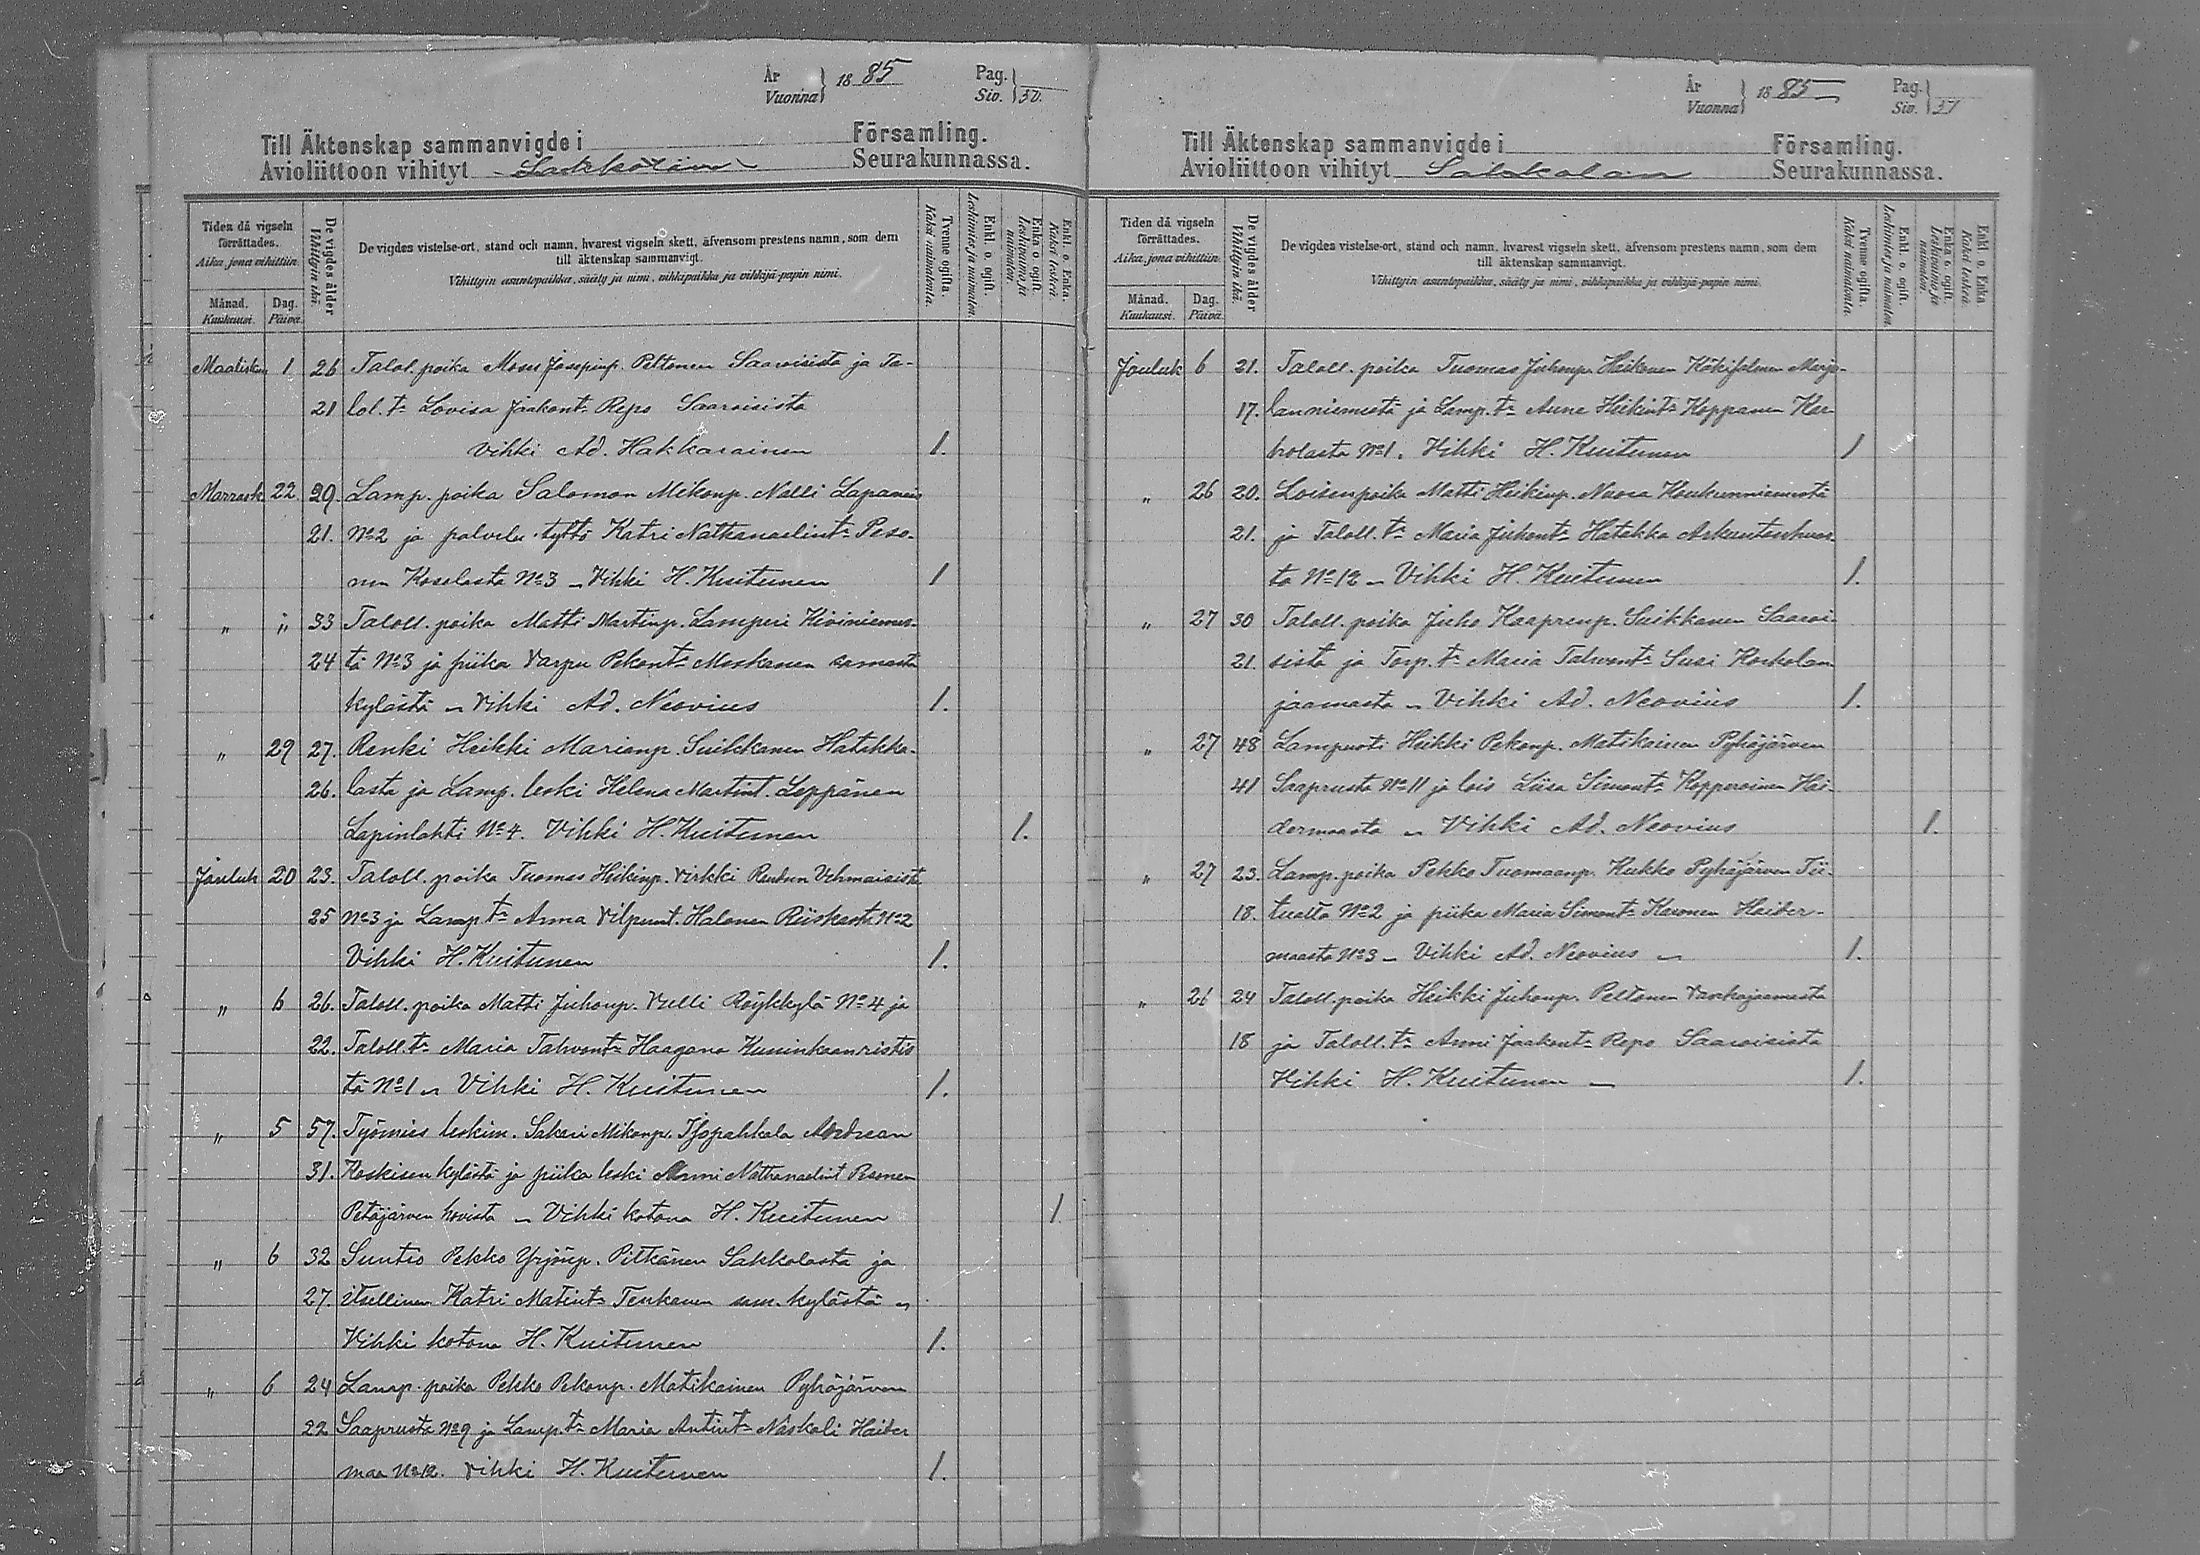 År
Vuonna } 1885
Pag.
Siv. } 50.
Till Äktenskap sammanvigde i Församling.
Avioliittoon vihityt Sakkolan Seurakunnassa.
Tiden då vigseln förrättades.
Aika, jona vihittiin.
Månad.
Kuukausi.
Dag.
Päivä.
De vigdes ålder
Vihittyin ikä.
De vigdes vistelse-ort, stånd och namn, hvarest vigseln skett, äfvensom prestens namn, som dem
till äktenskap sammanvigt.
Vihittyin asuntopaikka, sääty ja nimi, vihkipaikka ja vihkijä-papin nimi.
Tvenne ogifta.
Kaksi naimatonta.
Enkl. o. ogift.
Leskimies ja naimaton.
Enka o. ogift.
Leskivaimo ja naimaton.
Enkl. o. Enka.
Kaksi leskeä.
Maalisk. 1 26 Talol. poika Moses Josepinp. Peltonen Saaroisista ja Ta-
21 lol. tr Lovisa Jaakont. Repo Saaroisista
Vihki Ad. Hakkarainen 1.
Marrask. 22. 29. Lamp. poika Salomon Mikonp. Nalli Lapanais
21. No 2 ja palvelu-tyttö Katri Nathanaelint. Peso-
nen Koselasta No 3 – Vihki H. Kuitunen 1
„ „ 33 Taloll. poika Matti Martinp. Lamperi Kiviniemes-
24 tä No 3 ja piika Varpu Pekont. Moskanen samasta
kylästä – Vihki Ad. Neovius 1.
„ 29 27. Renki Heikki Marianp. Suikkanen Hatakka-
26. lasta ja Lamp. leski Helena Martint. Leppänen
Lapinlahti No 4. Vihki H. Kuitunen 1.
Jouluk 20 23. Taloll. poika Tuomas Heikinp. Virkki Raudun Vehmaisista
25 No 3 ja Lamp. tr Anna Vilpunt. Halonen Riiskasta No 2
Vihki H. Kuitunen 1.
„ 6 26. Taloll. poika Matti Juhonp. Vielli Röykkylä No 4 ja
22. Taloll. tr Maria Tahvont. Haapana Kuninkaanristis
tä No 1 – Vihki H. Kuitunen 1.
„ 5 57. Työmies leskim. Sakari Mikonp. Isopahkala Andrean
31. Koskisen kylästä ja piika leski Anni Nathanaelint Pesonen
Petäjärven hovista – Vihki kotona H. Kuitunen 1
„ 6 32 Suntio Pekko Yrjönp. Pitkänen Sakkolasta ja
27. itsellinen Katri Matint. Tenkanen sam. kylästä –
Vihki kotona H. Kuitunen 1.
„ 6 24 Lamp. poika Pekko Pekonp. Matikainen Pyhäjärven
22 Saaprusta No 9 ja Lamp. tr Maria Antint. Näskali Haiter
maa No 12. Vihki H. Kuitunen 1.
År
Vuonna } 1885
Pag.
Siv. } 51
Till Äktenskap sammanvigde i Församling.
Avioliittoon vihityt Sakkolan Seurakunnassa.
Tiden då vigseln förrättades.
Aika, jona vihittiin.
Månad.
Kuukausi.
Dag.
Päivä.
De vigdes ålder
Vihittyin ikä.
De vigdes vistelse-ort, stånd och namn, hvarest vigseln skett, äfvensom prestens namn, som dem
till äktenskap sammanvigt.
Vihittyin asuntopaikka, sääty ja nimi, vihkipaikka ja vihkijä-papin nimi.
Tvenne ogifta.
Kaksi naimatonta.
Enkl. o. ogift.
Leskimies ja naimaton.
Enka o. ogift.
Leskivaimo ja naimaton.
Enkl o. Enka
Kaksi leskeä.
Jouluk 6 21. Taloll. poika Tuomas Juhonp. Heikonen Käkisalmen Marja-
17. lanniemestä ja Lamp. tr Anna Heikint. Koppanen Kar-
holasta No 1. Vihki H. Kuitunen 1
„ 26 20. Loisen poika Matti Heikinp. Nuora Haukanniemestä
21. ja Taloll. tr Maria Juhont. Hatakka Arkuntanhuas-
ta No 12 – Vihki H. Kuitunen 1.
„ 27 30 Taloll. poika Juho Kaaprenp. Suikkanen Saaroi-
21. sista ja Torp. tr Maria Tahvont. Susi Korholan
jaamasta – Vihki Ad. Neovius 1.
„ 27 48 Lampuoti Heikki Pekonp. Matikainen Pyhäjärven
41 Saaprusta No 11 ja lois Liisa Simont. Kopperoinen Hai-
dermaasta – Vihki Ad. Neovius 1.
„ 27 23. Lamp. poika Pekko Tuomaanp. Kukko Pyhäjärven Tii-
18. tualta No 2 ja piika Maria Simont. Karonen Haider-
maasta No 3 – Vihki Ad. Neovius – 1.
„ 26 24 Taloll. poika Heikki Juhonp. Peltonen Vanhajaamasta
18 ja Taloll. tr Anni Jaakont. Repo Saaroisista
Vihki H. Kuitunen – 1.